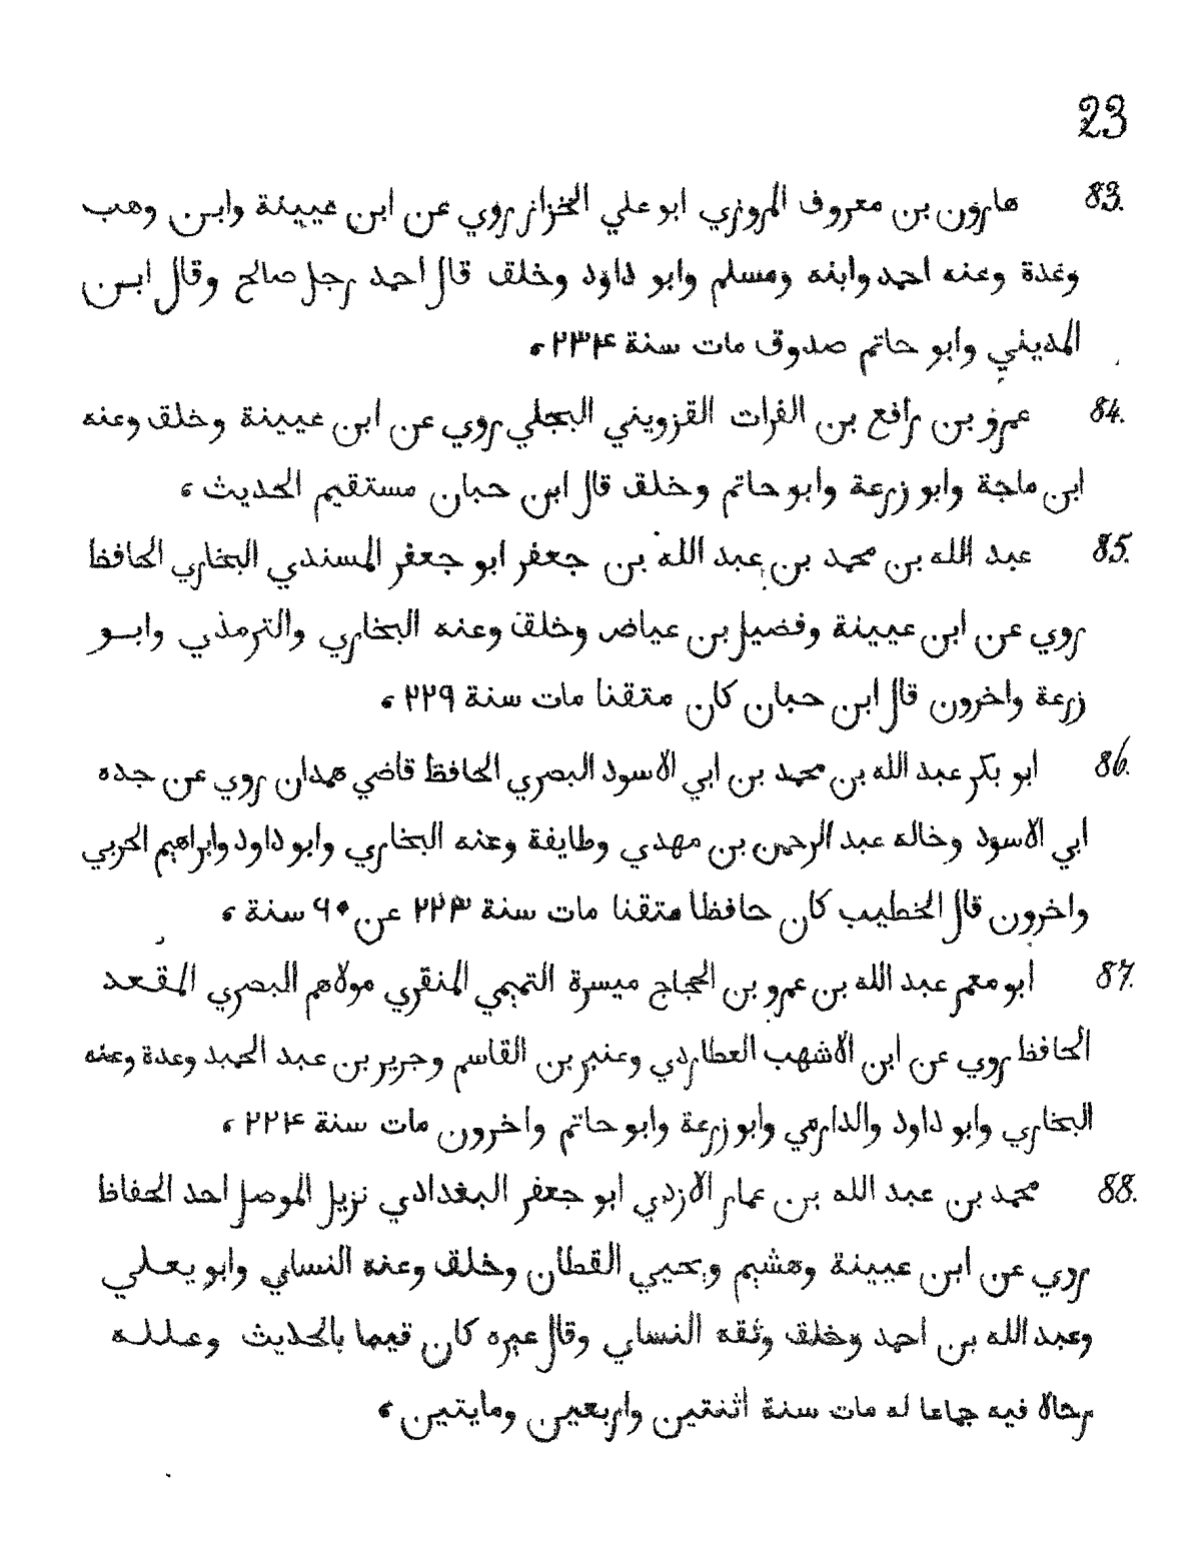 23
83. هارون بن معروف المروزي ابو علي الخزاز روي عن ابن عيينة وابن وهب
وعدة وعنه احمد وابنه ومسلم وابو داود وخلق قال احمد رجل صالح وقال ابن
المديني وابو حاتم صدوق مات سنة ٢٣٤ ،
84. عمرو بن رافع بن الفرات القزويني البجلي روي عن ابن عيينة وخلق وعنه
ابن ماجة وابو زرعة وابو حاتم وخلق قال ابن حبان مستقيم الحديث ،
85. عبد الله بن محمد بن عبد الله بن جعفر ابو جعفر المسندي البخاري الحافظ
روي عن ابن عيينة وفضيل بن عياض وخلق وعنه البخاري والترمذي وابو
زرعة واخرون قال ابن حبان كان متقنا مات سنة ٢٢٩ ،
86. ابو بكر عبد الله بن محمد بن ابي الاسود البصري الحافظ قاضي همدان روي عن جده
ابي الاسود وخاله عبد الرحمن بن مهدي وطايفة وعنه البخاري وابو داود وابراهيم الحربي
واخرون قال الخطيب كان حافظا متقنا مات سنة ٢٢٣ عن ٦٠ سنة ،
87. ابو معمر عبد الله بن عمرو بن الحجاج ميسرة التميمي المنقري مولاهم البصري المقعد
الحافظ روي عن ابن الاشهب العطاردي وعنبر بن القاسم وجرير بن عبد الحميد وعدة وعنه
البخاري وابو داود والدارمي وابو زرعة وابو حاتم واخرون مات سنة ٢٢٤ ،
88. محمد بن عبد الله بن عمار الازدي ابو جعفر البغدادي نزيل الموصل احد الحفاظ
روي عن ابن عيينة وهشيم ويحيي القطان وخلق وعنه النساي وابو يعلي
وعبد الله بن احمد وخلق وثقه النساي وقال غيره كان قيما بالحديث وعلله
رحالا فيه جماعا له مات سنة اثنتين واربعين ومايتين ،